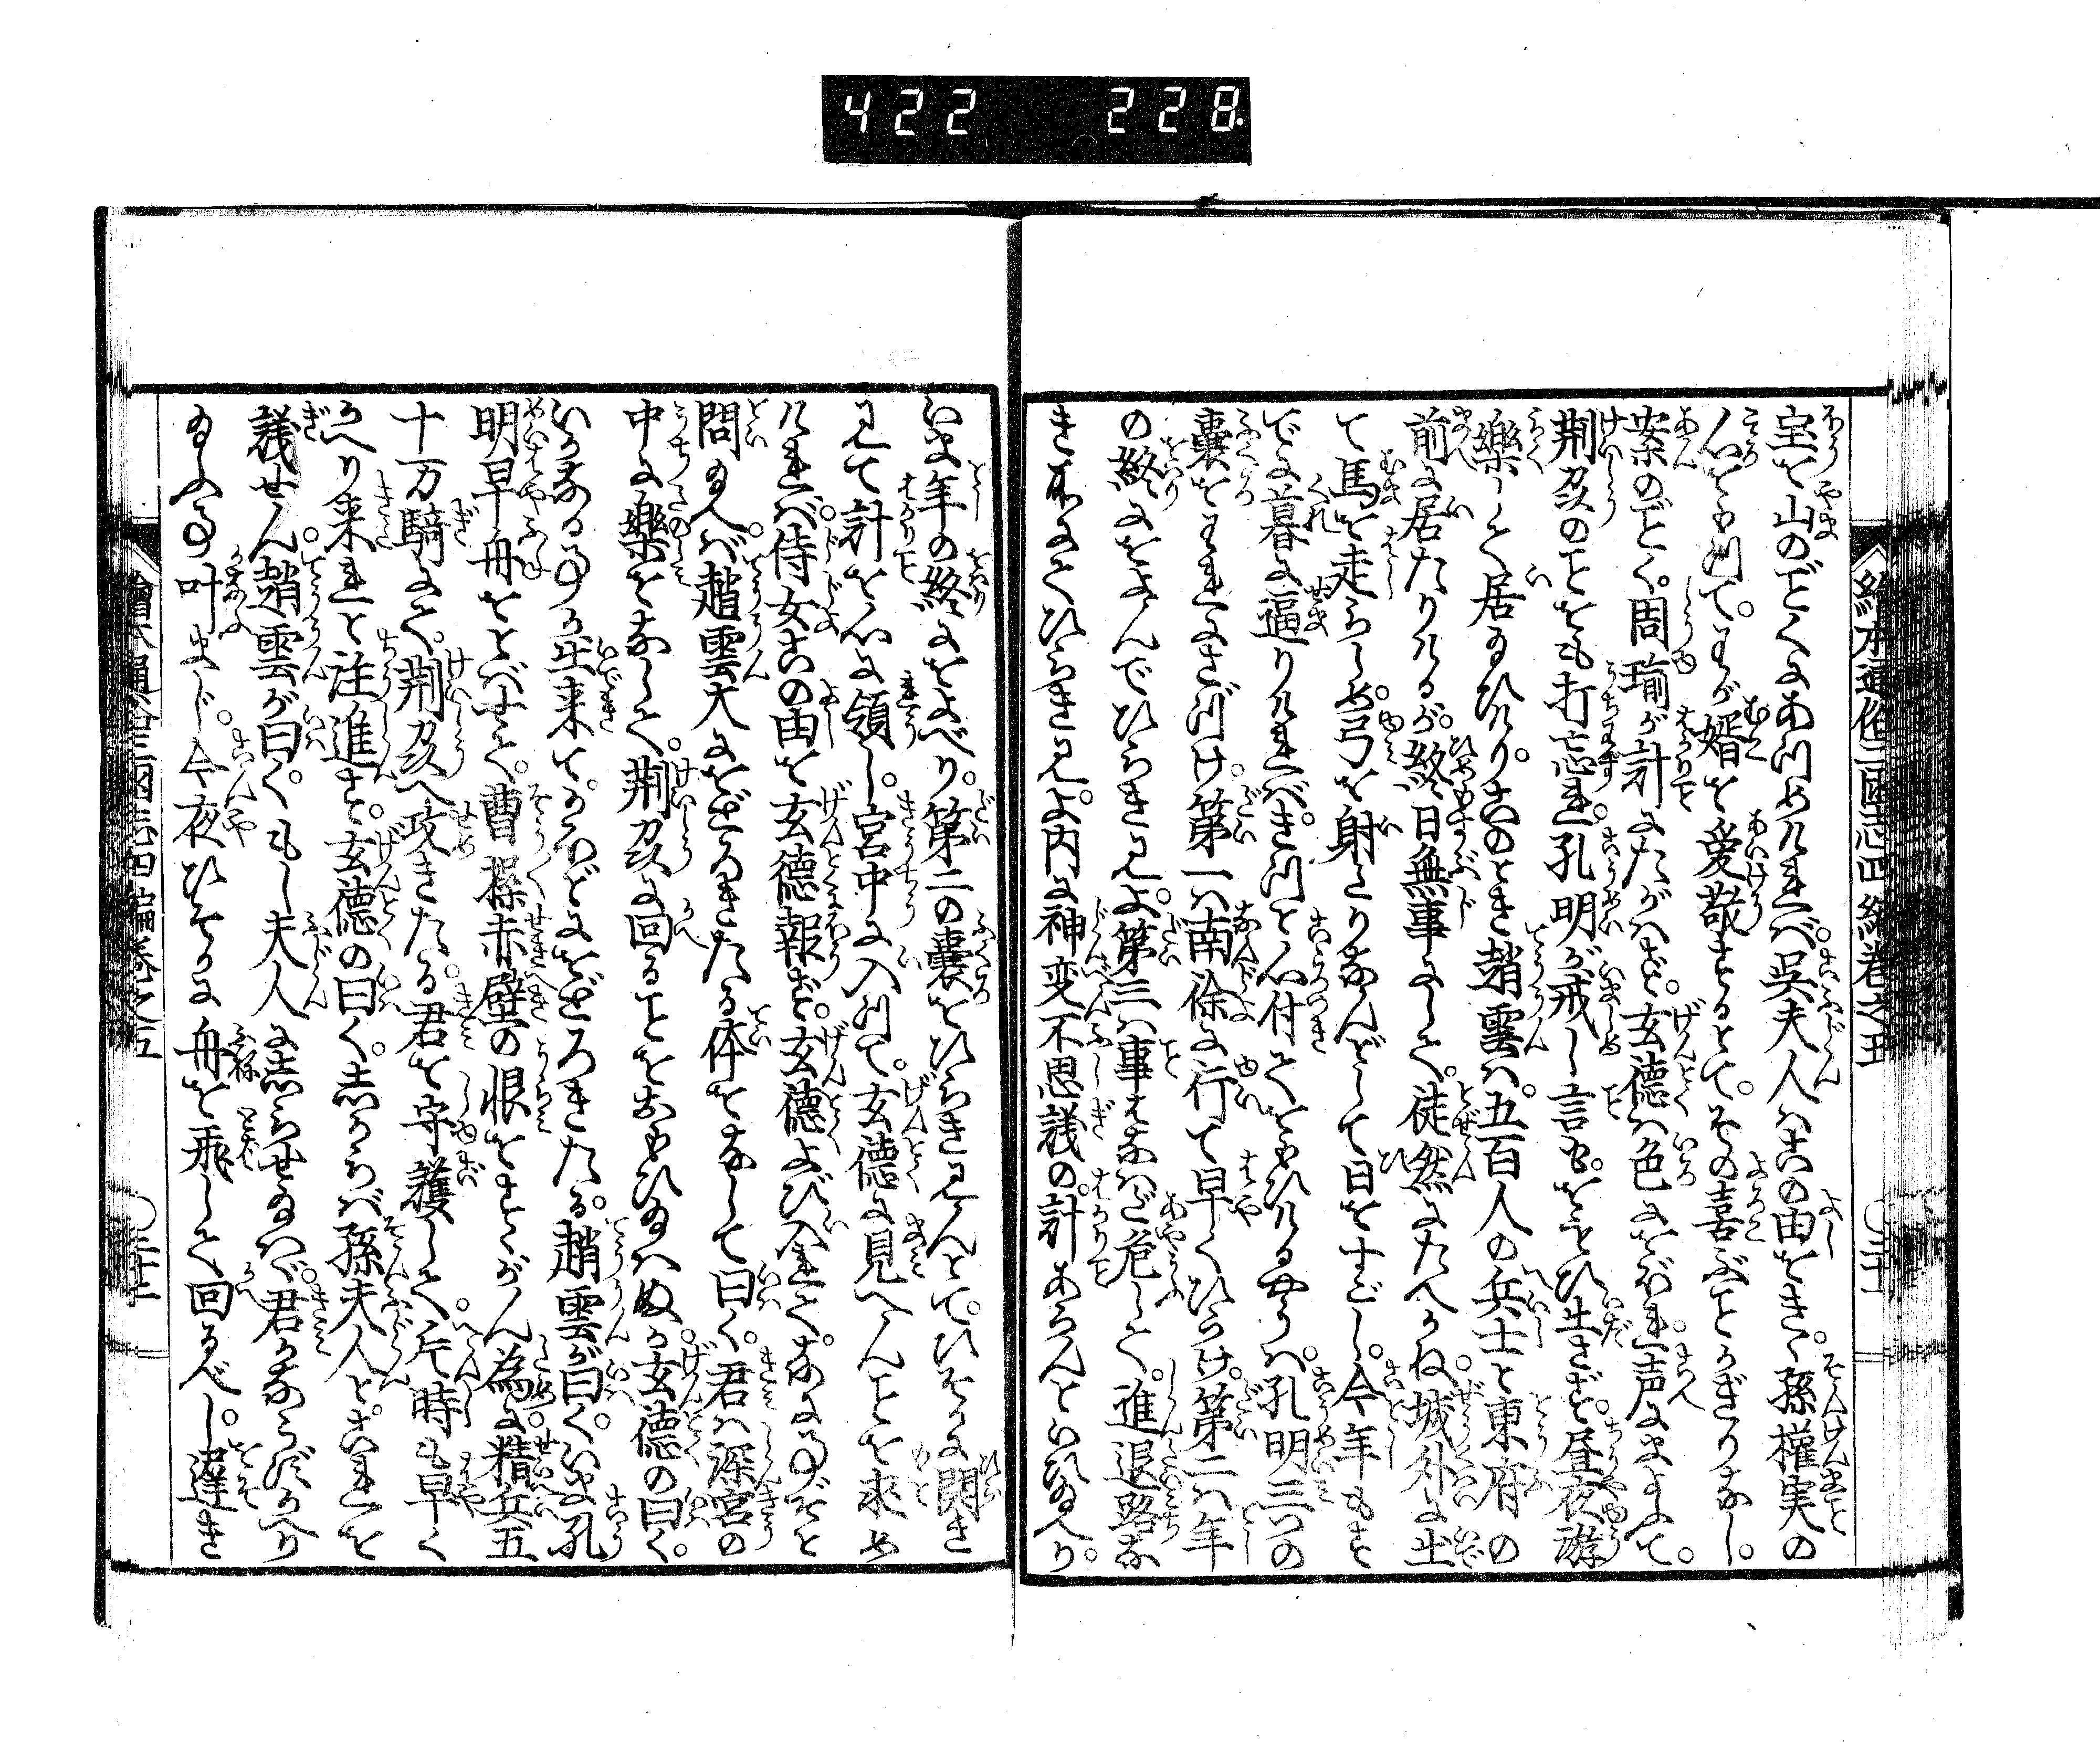 422 228
繪本通俗三國志四編卷之五
宝を山のごとくあつめければ。呉夫人はこの由をきゝ。孫權実の
心とおもつて。わが婿を愛敬するとて。その喜ぶことかぎりなし。
案のごとく。周瑜が計にたがはず。玄德は色におぼれ。声にまよふて。
荆州のことをも打忘れ。孔明が戒し言も。おもひ出さず。昼夜游
樂して居ゐひけり。このとき趙雲は。五百人の兵士と東府の
前に居たりけるが。終日無事にして。徒然にたへかね。城外に出
て馬を走らしめ。弓を射させなんどして日をすごし。今年もす
でに暮に逼りければ。きつと心付ておもひけるやうは。孔明三つの
囊をわれにさづけ。第一は南徐に行て早くひらけ。第二は年
の終におよんでひらきみよ。第三は事きはめて危して。進退路な
き所にてひらきみよ。内に神変不思議の計あらんといひゐへり。
いま年の終におよべり。第二の囊をひらきみんとて。ひそかに開き
みて計を心に領し。宮中に入つて。玄德に見へんことを求め
ければ。侍女この由を玄德報ず。玄德よび入れて。なに事ぞと
問ゐへば。趙雲大におどろきたる体をなして曰く。君は深宮の
中に樂をなして。荆州に回ることをおもひゐはぬか。玄德の曰く。
いかなる事か出来て。かほどにおどろきたる。趙雲が曰く。いま孔
明早舟をとばせて。曹操赤壁の恨をすゝがん為に。精兵五
十万騎にて。荆州へ攻きたる。君を守護して。片時も早く
かへり来れと注進す。玄德の曰く。しからば孫夫人と。これを
議せん。趙雲が曰く。もし夫人に志らせゐはゞ。君かならずかへり
ゐふ事叶まじ。今夜ひそかに舟を乘して回るべし。遲き
繪本通俗三國志四編卷之五